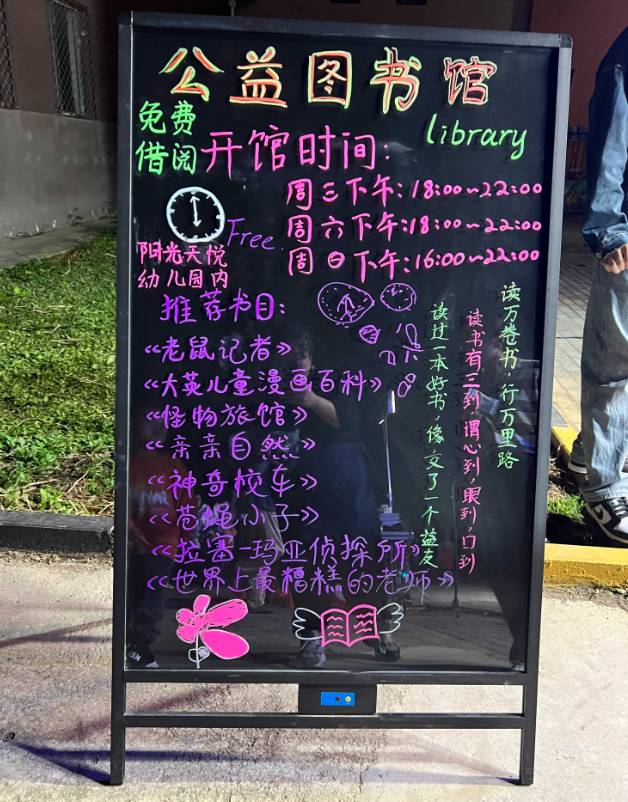 公益图书馆
library
免费
借阅
开馆时间:
周三下午:18:00~22:00
周六下午:18:00~22:00
周日下午:16:00~22:00
Free
阳光天悦
幼儿园内
推荐书目:
《老鼠记者》
《大英儿童漫画百科》
《怪物旅馆》
《亲亲自然》
《神奇校车》
《苍蝇小子》
《拉塞-玛亚侦探所》
《世界上最糟糕的老师》
读万卷书,行万里路
读书有三到,谓心到,眼到,口到
读过一本好书,像交了一个益友